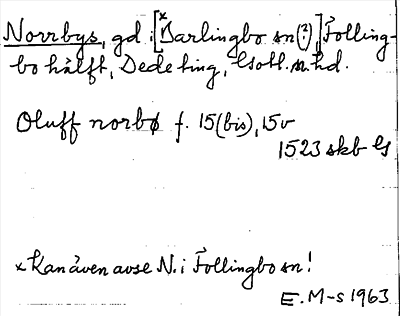 Norrbys, gd i [x Barlingbo sn (?),] Folling-
bo hälft, Dede ting, Gotl. n. hd.
Oluff norbø f. 15 (bis), 15v
1523 skb G
x Kan även avse N. i Follingbo sn!
E. M-s 1963